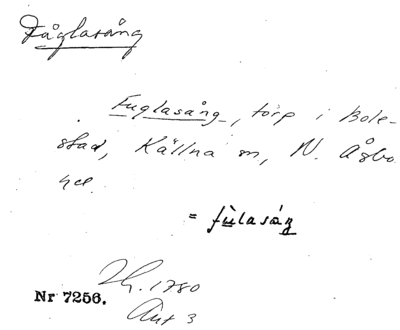 Fåglasång
Fuglasång, torp i Bole-
stad, Källna sn, N. Åsbo
hd.
= fùlasáŋ
1780
Nr 7256.
Ant 3